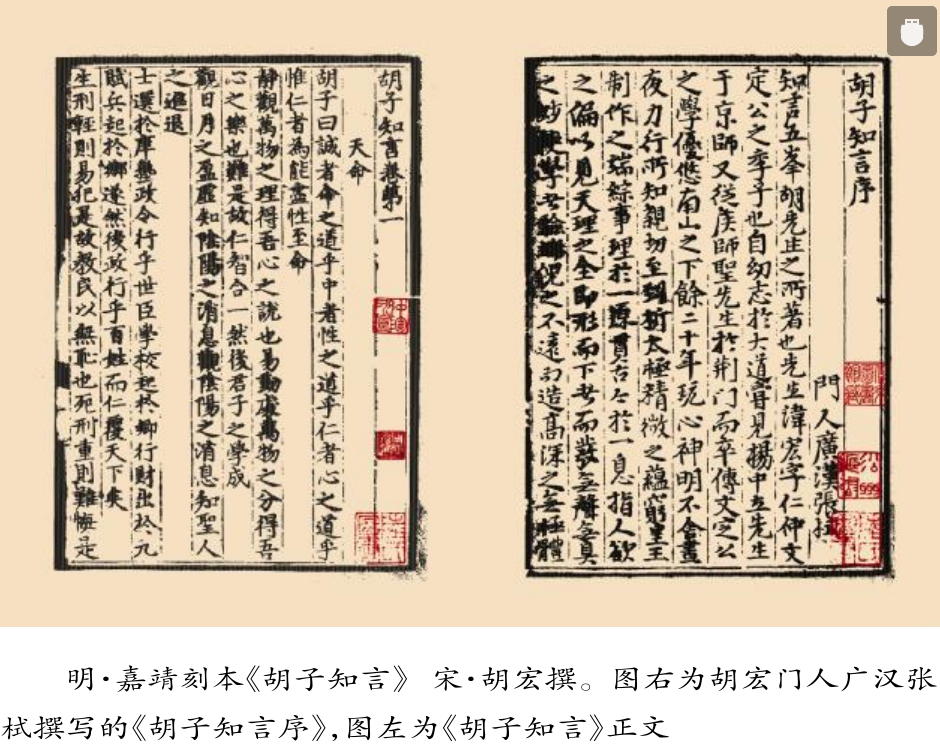 胡子知言序
門人廣漢張栻
知言五峯胡先生之所著也先生諱宏字仁仲文
定公之季子也自幼志於大道嘗見楊中立先生
于京師又從侯師聖先生於荆门而卒傳文定公
之學優悠南山之下餘二十年玩心神明不舍晝
夜力行所知親切至到析太極精微之蘊窮皇王
制作之端綜事理於一原貫古今於一息指人欲
之偏以見天理之全即形而下者而發無聲無臭
之妙使學者驗端倪之不遠而造高深之無極體
胡子知言卷第一
天命
胡子曰誠者命之道乎中者性之道乎仁者心之道乎
惟仁者為能盡性至命
靜觀萬物之理得吾心之説也易動處萬物之分得吾
心之樂也難是故仁智合一然後君子之學成
觀日月之盈虛知陰陽之消息觀陰陽之消息知聖人
之進退
士選於庠塾政令行乎世臣學校起於鄉行財出於九
賦兵起於鄉遂然後政行乎百姓而仁覆天下矣
生刑輕則易犯是故教民以無恥也死刑重則難悔是
明·嘉靖刻本《胡子知言》 宋·胡宏撰。图右为胡宏门人广汉张
栻撰写的《胡子知言序》,图左为《胡子知言》正文